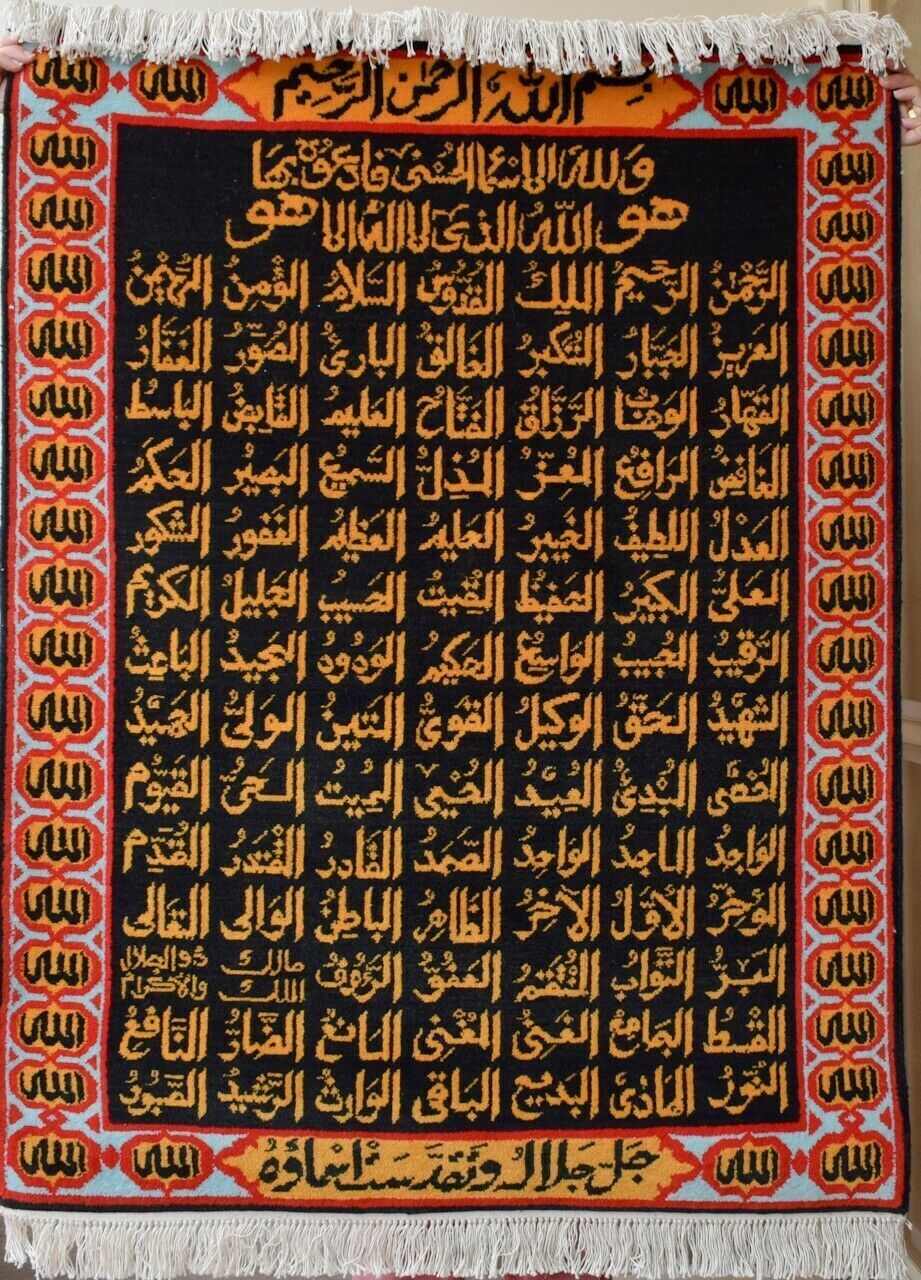 بسم الله الرحمن الرحيم
ولله الاسماء الحسنى فادعوه بها
هو الله الذى لا اله الا هو
الرَّحْمٰنُ الرَّحيمُ الملِكُ القدّوسُ السَّلامُ المؤمِنُ المهيمِنُ
العزيزُ الجبّارُ المتكبرُ الخالقُ البارئُ المصوّرُ الغفّارُ
القهّارُ الوهّابُ الرَزّاقُ الفتّاحُ العليمُ القابِضُ الباسِطُ
الخافِضُ الرافِعُ المُعِزُّ المُذِلُّ السَّميعُ البَصيرُ الحكَمُ
العَدْلُ اللطيفُ الخَبيرُ الحليمُ العظيمُ الغفورُ الشكورُ
العَلىُّ الكَبيرُ الحفيظُ المُقيتُ الحسيبُ الجليلُ الكريمُ
الرَّقيبُ المُجيبُ الواسِعُ الحكيمُ الوَدودُ المجيدُ الباعِثُ
الشهيدُ الحَقُّ الوكيلُ القوىُّ المتينُ الولىُّ الحميدُ
المُحْصى المُبْدِئُ المُعيدُ المُحْيى المُميتُ الحَىُّ القيّومُ
الواجِدُ الماجِدُ الواحِدُ الصَّمَدُ القادرُ المُقتَدرُ المُقَدِّمُ
المُؤخِّرُ الأوّلُ الآخرُ الظاهرُ الباطِنُ الوالى المتعالى
البَرُّ التوّابُ المُنْتَقِمُ العفوُّ الرَّؤُفُ مالك الملك ذو الجلال والاكرام
المُقْسِطُ الجامِعُ الغَنىُّ المُغْنى المانعُ الضّارُّ النّافِعُ
النّورُ الهادى البديعُ الباقى الوارثُ الرَّشيدُ الصَّبورُ
جَلَّ جَلالُهُ وَتَقَدَّسَتْ اَسْماؤُهُ
الله